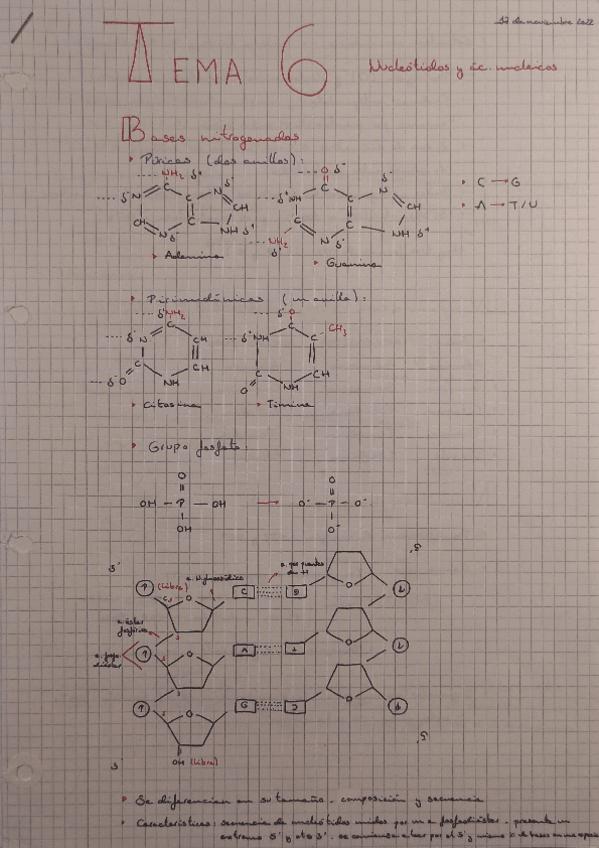 17 de noviembre 2022
TEMA 6
Nucleótidos y ác. nucleicos
Bases nitrogenadas
Púricas (dos anillos):
NH₂ δ⁺
δ⁻ N
C
N δ⁻
CH
C
C
CH
N δ⁻
NH δ⁺
Adenina
O δ⁻
δ⁺ NH
C
N δ⁻
C
C
CH
NH₂ δ⁺
N δ⁻
NH δ⁺
Guanina
C → G
A → T/U
Pirimidínicas (un anillo):
δ⁺ NH₂
C
δ⁻ N
CH
C
CH
δ⁻ O
NH
Citosina
δ⁻ O
C
CH₃
δ⁺ NH
C
C
CH
O
NH
Timina
Grupo fosfato:
O
OH – P – OH
OH
→
O
O⁻ – P – O⁻
O⁻
5'
P (Libre)
e. N-glucosídico
e. por puentes de H
C
G
e. éster fosfórico
A
T
G
C
OH (Libre)
3'
Se diferencian en su tamaño, composición y secuencia
Características: secuencia de nucleótidos unidos por un e. fosfodiéster, presenta un
extremo 5' y otro 3', se comienza a leer por el 5' y mismo